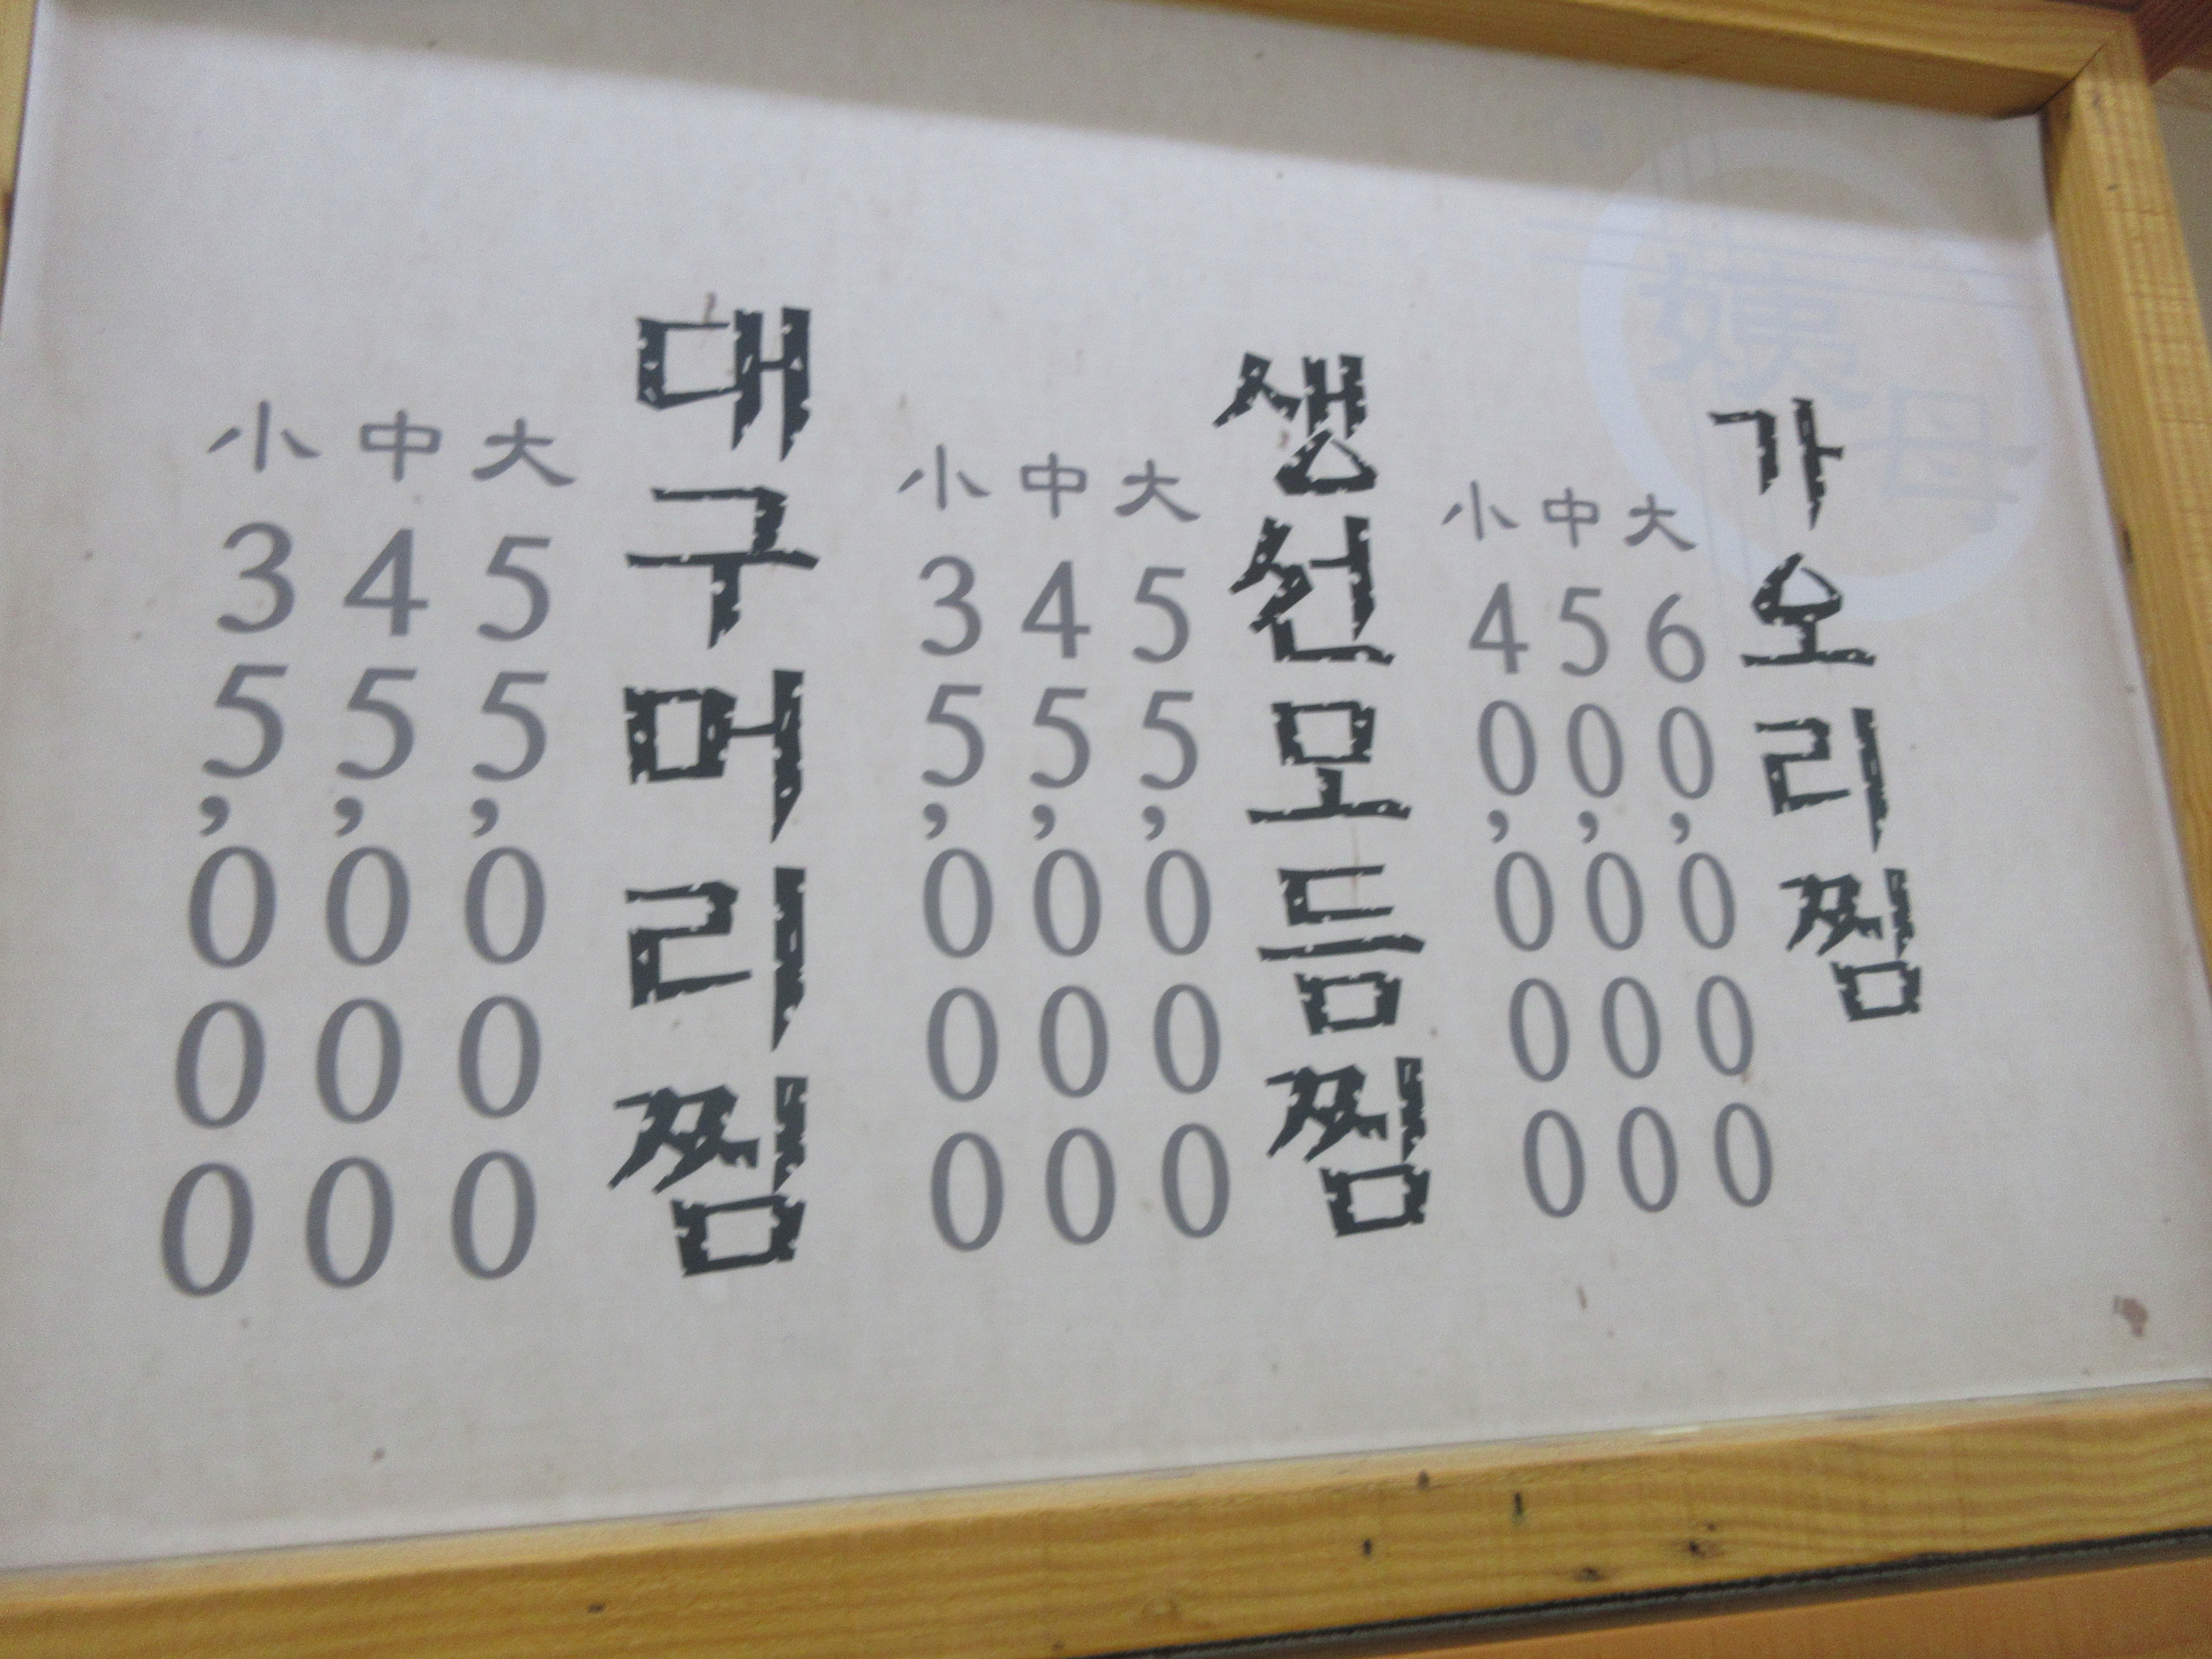 가오리찜
大 60,000
中 50,000
小 40,000
생선모듬찜
大 55,000
中 45,000
小 35,000
대구머리찜
大 55,000
中 45,000
小 35,000